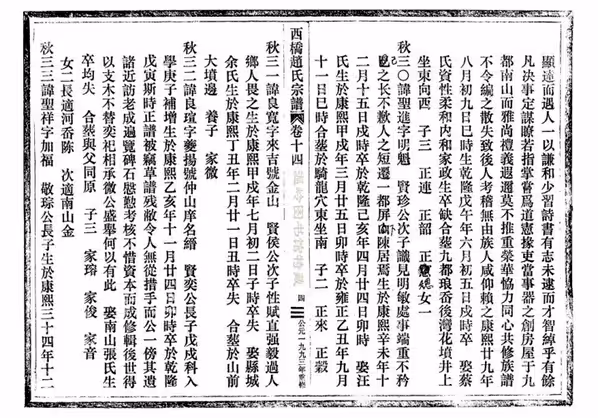 顯達而遇人一以謙和少習詩書有志未逮而才智綽乎有餘
凡決事定謀瞭若指掌當爲道憲掾吏當事器之創房屋于九
都南山而雅尚禮義遐邇莫不推重榮華恊力同心共修族譜
不令編之散失致後人考稽無由族人咸仰賴之康熙廿九年
八月初九日巳時生乾隆戊午年六月初五日戌時卒 娶蔡
氏資性柔和內和家政生卒缺合葬九都琅香後灣花墳井上
坐東向西 子三 正連 正韶 正 女一
秋三〇諱聖進字明魁 賢珍公次子識見明敏處事端重不矜
之長不歉人之短遷一都屏山陳居焉生於康熙辛未年十
二月十五日戌時卒於乾隆己亥年四月廿四日卯時 娶汪
氏生於康熙甲戌年三月廿五日卯時卒於雍正乙丑年九月
十一日巳時合葬於騎龍穴東坐南 子二 正來 正穀
西橋趙氏宗譜 卷十四 四 公元一九九三年重修
秋三一諱良寬字來吉號金山 賢侯公次子性賦直强毅過人
鄉人畏之生於康熙甲戌年七月初二日子時卒失 娶縣城
余氏生於康熙丁丑年二月廿一日丑時卒失 合葬於山前
大墳邊 養子 家微
秋三二諱良瑄字夔揚號仲山庠名縉 賢奕公長子戊戌科入
學庚子補增生於康熙乙亥年十一月廿四日卯時卒於乾隆
戊寅斯時正譜被竊草譜残敝令人無從措手而公一傍其遺
諸近訪老成遍覽碑石慇懃考核不惜資本而成修輯後世得
以支木不替奕祀相承微公盛舉何以有此 娶南山張氏生
卒均失 合葬與父同原 子三 家瑢 家俊 家音
女二長適河香陈 次適南山金
秋三三諱聖祥字加福 敬琮公長子生於康熙三十四年十二